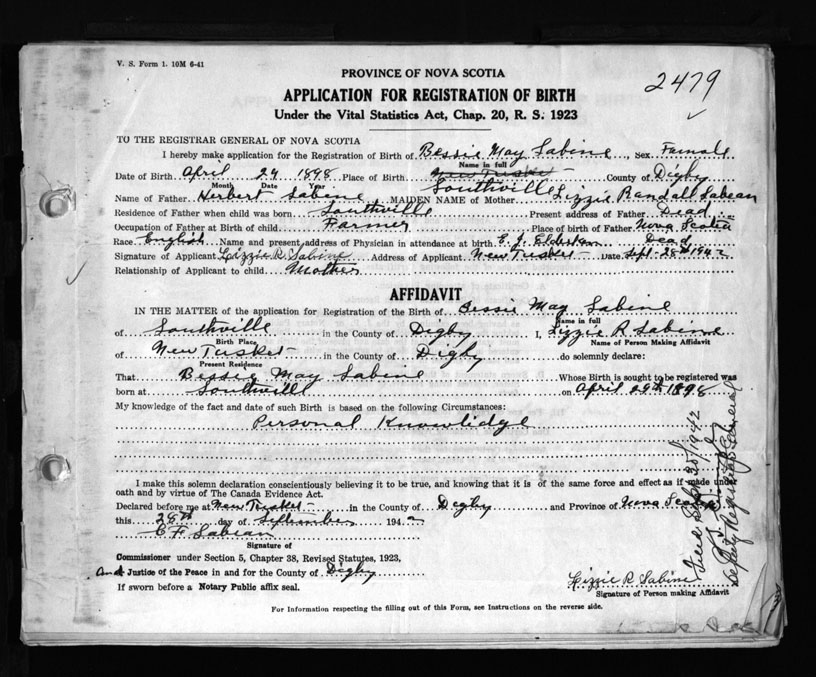 V. S. Form 1. 10M 6-41
2479
PROVINCE OF NOVA SCOTIA
APPLICATION FOR REGISTRATION OF BIRTH
Under the Vital Statistics Act, Chap. 20, R. S. 1923
TO THE REGISTRAR GENERAL OF NOVA SCOTIA
I hereby make application for the Registration of Birth of Bessie May Sabine, Sex Female
Name in full
Date of Birth April 29 1898 Place of Birth New Tusket County of Digby
Month Date Year Southville
Name of Father Herbert Sabine MAIDEN NAME of Mother Lizzie Randall Sabean
Residence of Father when child was born Southville Present address of Father Dead
Occupation of Father at Birth of child Farmer Place of birth of Father Nova Scotia
Race English Name and present address of Physician in attendance at birth E. J. Elderkin Dead
Signature of Applicant Lizzie R. Sabine Address of Applicant New Tusket Date Sept. 28th 1942
Relationship of Applicant to child Mother
AFFIDAVIT
IN THE MATTER of the application for Registration of the Birth of Bessie May Sabine
Name in full
of Southville in the County of Digby I, Lizzie R Sabine
Birth Place Name of Person Making Affidavit
of New Tusket in the County of Digby do solemnly declare:
Present Residence
That Bessie May Sabine Whose Birth is sought to be registered was
born at Southvill on April 29th 1898
My knowledge of the fact and date of such Birth is based on the following Circumstances:
Personal Knowlidge
I make this solemn declaration conscientiously believing it to be true, and knowing that it is of the same force and effect as if made under
oath and by virtue of The Canada Evidence Act.
Declared before me at New Tusket in the County of Digby and Province of Nova Scotia
this 28th day of September 1942
E F. Sabean
Signature of
Commissioner under Section 5, Chapter 38, Revised Statutes, 1923,
And Justice of the Peace in and for the County of Digby
If sworn before a Notary Public affix seal.
Lizzie R Sabine
Signature of Person making Affidavit
For Information respecting the filling out of this Form, see Instructions on the reverse side.
Filed Sept 30/1942
Deputy Registrar General